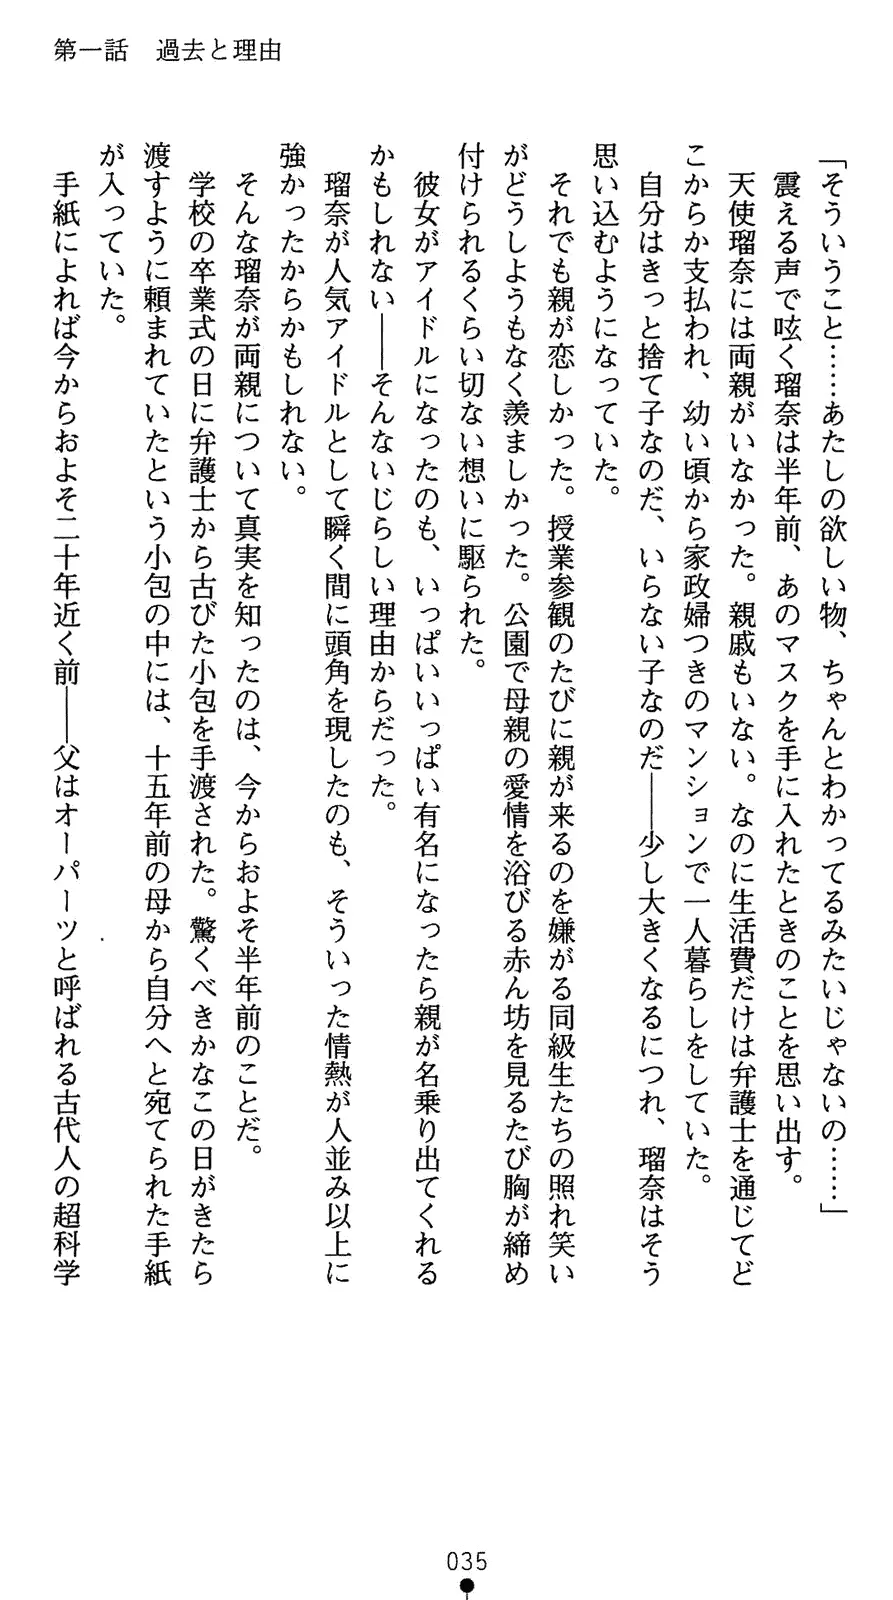 第一話　過去と理由
「そういうこと……あたしの欲しい物、ちゃんとわかってるみたいじゃないの……」
　震える声で呟く瑠奈は半年前、あのマスクを手に入れたときのことを思い出す。
　天使瑠奈には両親がいなかった。親戚もいない。なのに生活費だけは弁護士を通じてど
こからか支払われ、幼い頃から家政婦つきのマンションで一人暮らしをしていた。
　自分はきっと捨て子なのだ、いらない子なのだ――少し大きくなるにつれ、瑠奈はそう
思い込むようになっていた。
　それでも親が恋しかった。授業参観のたびに親が来るのを嫌がる同級生たちの照れ笑い
がどうしようもなく羨ましかった。公園で母親の愛情を浴びる赤ん坊を見るたび胸が締め
付けられるくらい切ない想いに駆られた。
　彼女がアイドルになったのも、いっぱいいっぱい有名になったら親が名乗り出てくれる
かもしれない――そんないじらしい理由からだった。
　瑠奈が人気アイドルとして瞬く間に頭角を現したのも、そういった情熱が人並み以上に
強かったからかもしれない。
　そんな瑠奈が両親について真実を知ったのは、今からおよそ半年前のことだ。
　学校の卒業式の日に弁護士から古びた小包を手渡された。驚くべきかなこの日がきたら
渡すように頼まれていたという小包の中には、十五年前の母から自分へと宛てられた手紙
が入っていた。
　手紙によれば今からおよそ二十年近く前――父はオーパーツと呼ばれる古代人の超科学
035